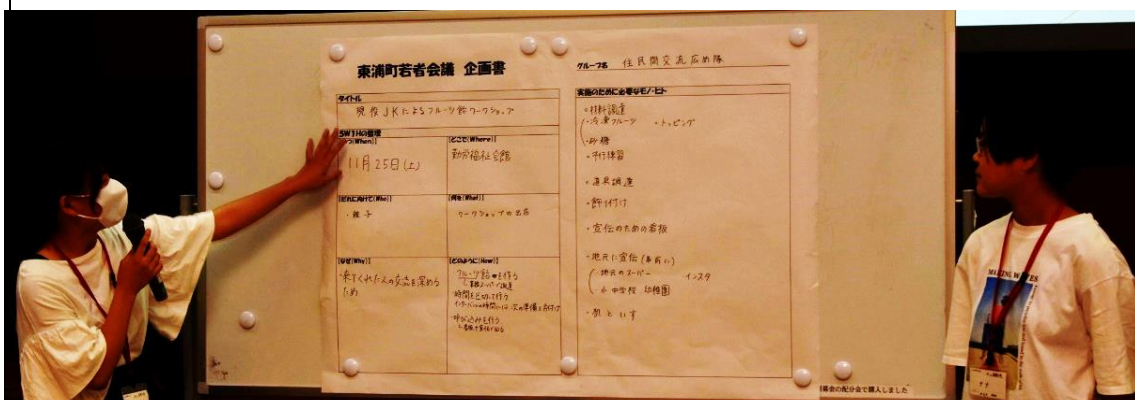 東浦町若者会議 企画書
グループ名 住民間交流広め隊
タイトル
現役JKによるフルーツ飴ワークショップ
5W1Hの整理
いつ(When)】
11月25日(土)
【どこで(Where)】
勤労福祉会館
【だれに向けて(Who)】
・親子
【何を(What)】
ワークショップの出店
【なぜ(Why)】
・来てくれた人の交流を深める
ため
【どのように(How)】
フルーツ飴を作る
・時間を区切って行う
・呼び込みを行う
実施のために必要なモノ・ヒト
・材料調達
・冷凍フルーツ ・トッピング
・砂糖
・道具調達
・飾り付け
・宣伝のための看板
・地元に宣伝(事前に)
・地元のスーパー インスタ
小中学校 幼稚園
・机といす
MAKING WAVES
募金の配分金で購入しました